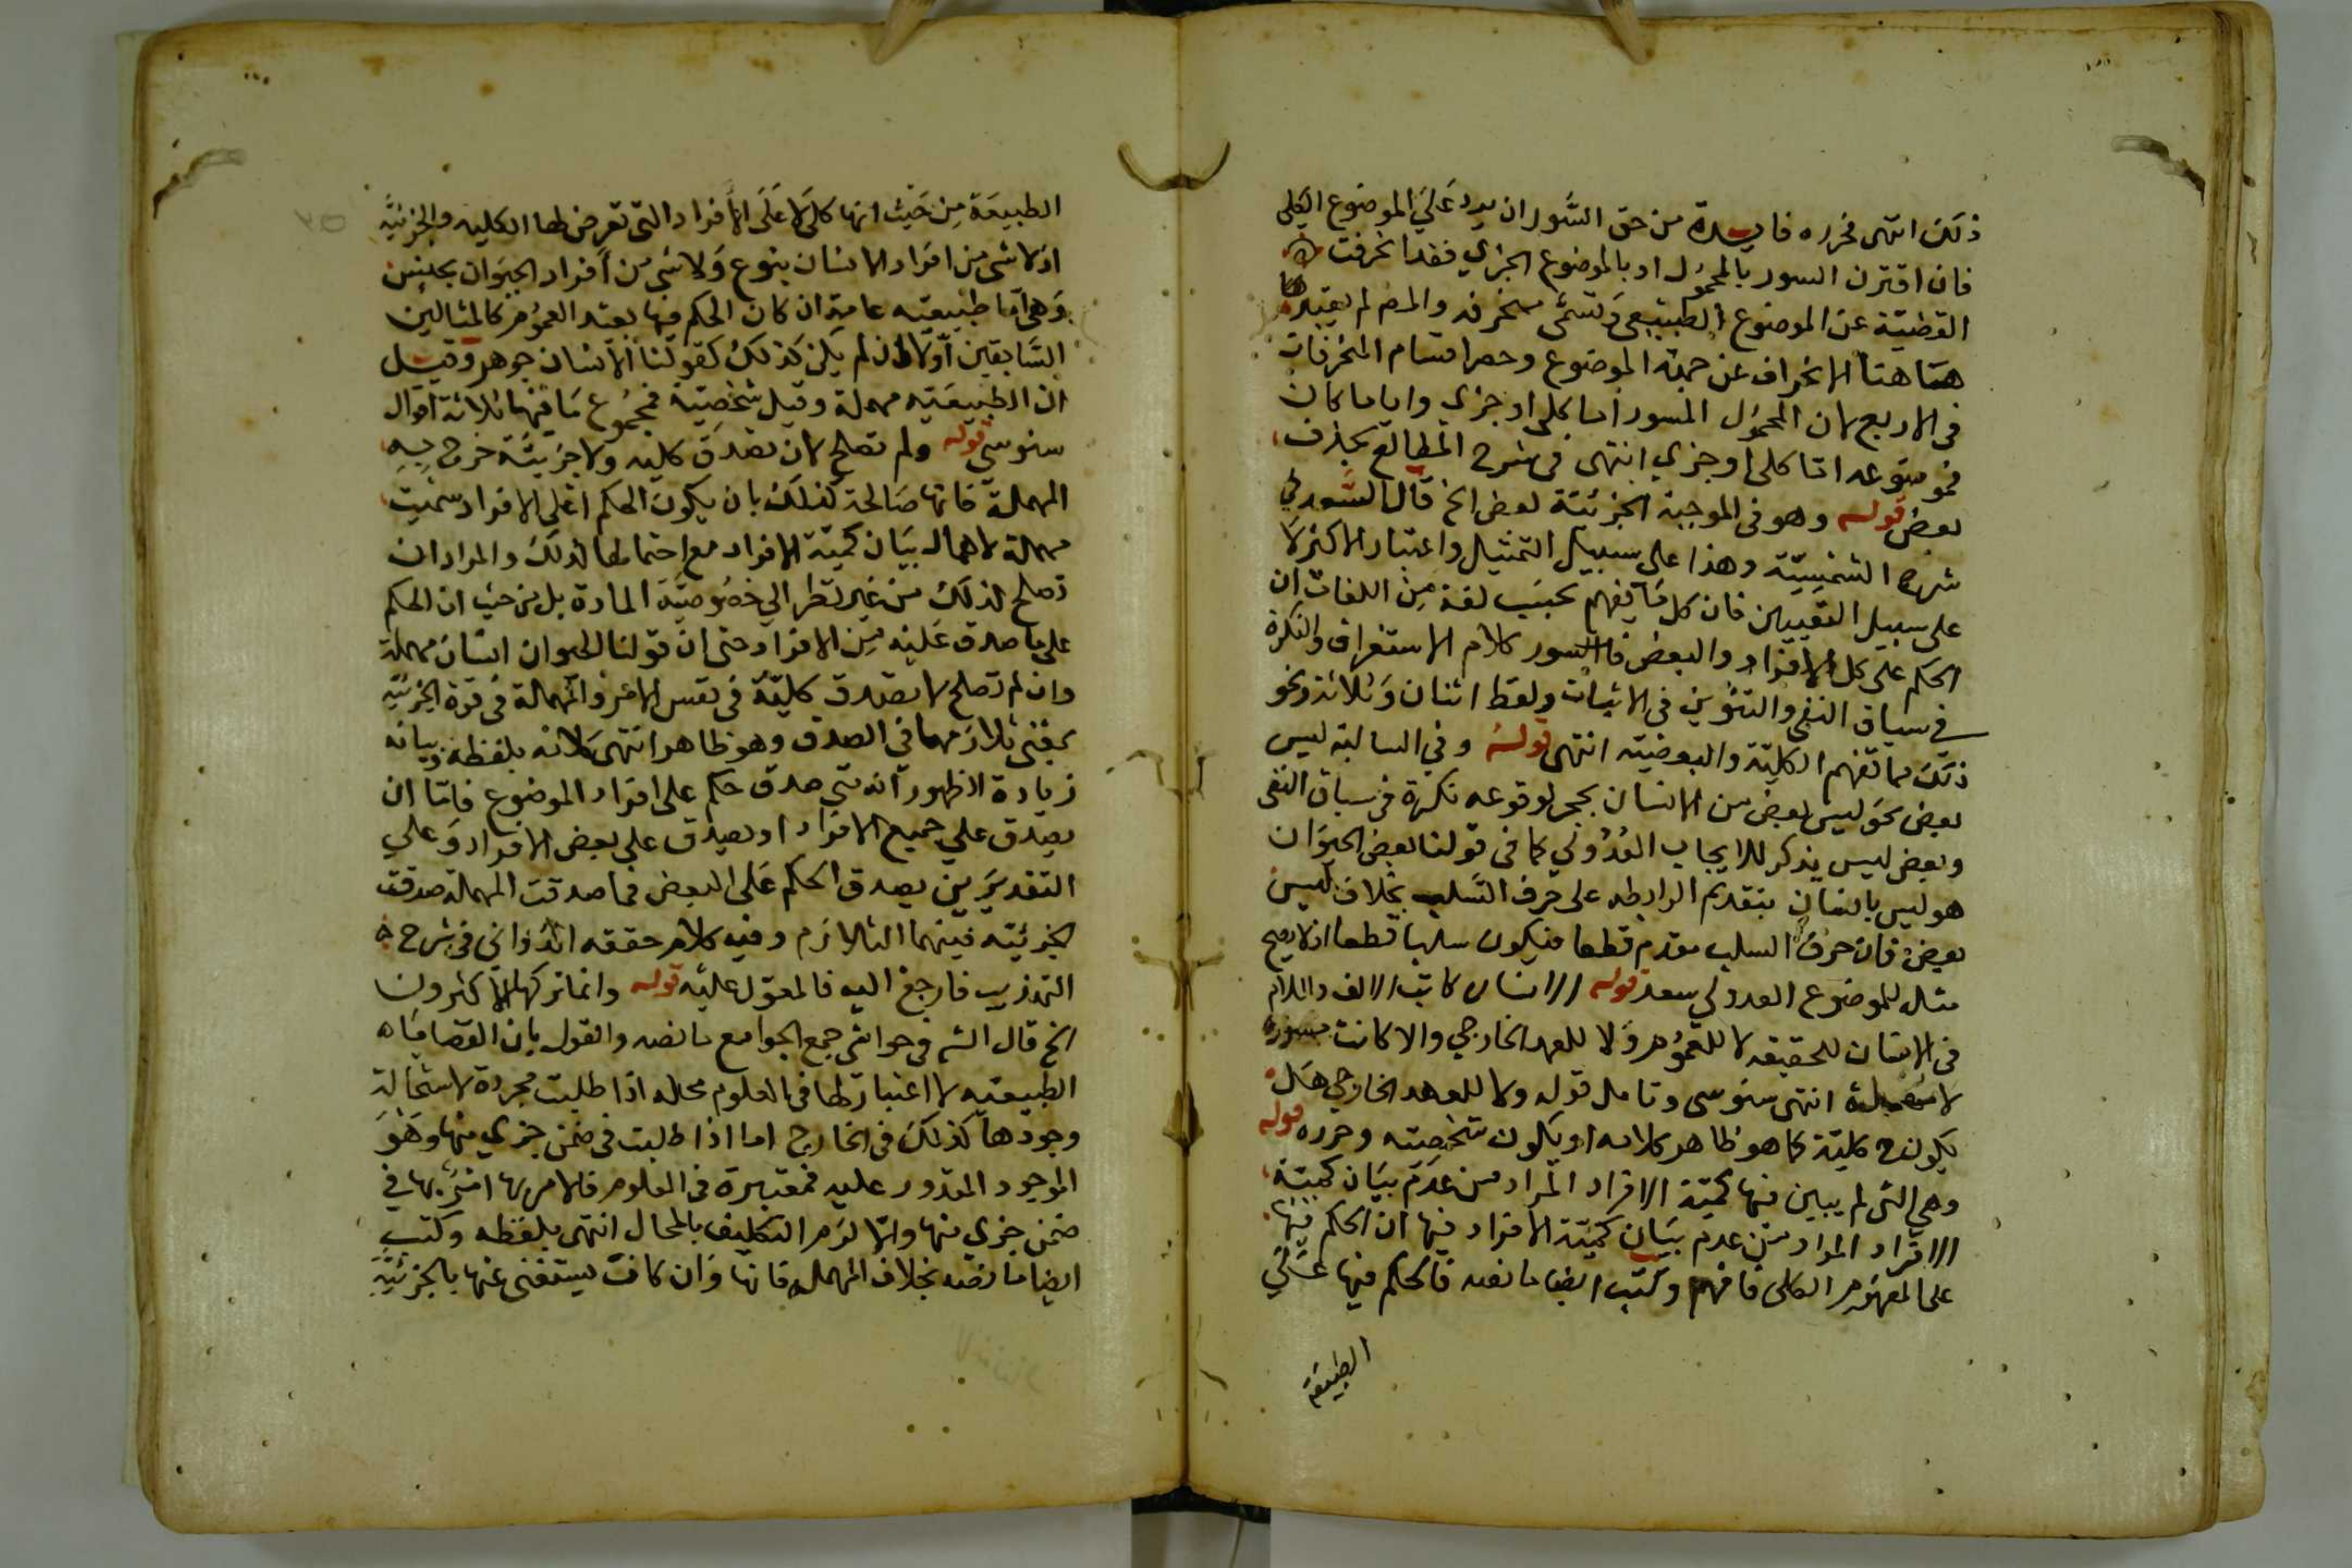 ذلك انتهى فحرره فايدة من حق السور ان يرد على الموضوع الكلي
فان اقترن السور بالمحمول او بالموضوع الجزي فقد انحرفت
القضية عن الموضوع الطبيعي وتسمى منحرفه والمص لم يعتبر
هاهنا الانحراف عن جهة الموضوع وحصر اقسام المنحرفات
فى الاربع لان المحمول المسور اما كلى او جزي واياما كان
فموضوعه اما كلى او جزي انتهى فى شرح المطالع بحذف
بعض قوله وهو فى الموجبة الجزئية بعض الخ قال السعد في
شرح الشمسية وهذا على سبيل التمثيل واعتبار الاكثر لا
على سبيل التعيين فان كل ما يفهم بحسب لغة من اللغات ان
الحكم على كل الافراد والبعض فالسور كلام الاستغراق والنكرة
في سياق النفى والتنوين فى الاثبات ولفظ اثنان وثلاثة ونحو
ذلك مما تفهم الكلية والبعضية انتهى قوله وفي السالبة ليس
بعض نحو ليس بعض من الانسان بحجر لوقوعه نكرة في سياق النفى
وبعض ليس يذكر للايجاب العدولي كما فى قولنا بعض الحيوان
هو ليس بانسان بتقديم الرابطه على حرف السلب بخلاف ليس
بعض فان حرف السلب مقدم قطعا فيكون سلبا قطعا اذ لا يصح
مثال للموضوع العدولي سعد قوله الانسان كاتب الالف واللام
فى الانسان للحقيقه لا للعموم ولا للعهد الخارجي والا كانت مسورة
لا مهملة انتهى سنوسى وتامل قوله ولا للعهد الخارجي هل
يكون ح كلية كما هو ظاهر كلامه او يكون شخصيته وحرره قوله
وهي التى لم يبين فيها كمية الافراد المراد من عدم بيان كمية
الافراد المراد من عدم بيان كمية الافراد فيها ان الحكم فيها
على المفهوم الكلى فافهم وكتب ايضا ما نصه فالحكم فيها على
الطبيعة
الطبيعة من حيث انها كلى لا على الافراد التى تعرض لها الكليه والجزئية
اذ لا شى من افراد الانسان بنوع ولا شى من افراد الحيوان بجنس
وهى اما طبيعيه عامة ان كان الحكم فيها بقيد العموم كالمثالين
السابقين او لا ان لم يكن كذلك كقولنا الانسان جوهر وقيل
ان الطبيعيه مهملة وقيل شخصية فمجموع ما فيها ثلاثة اقوال
سنوسي قوله ولم تصلح لان تصدق كليه ولا جزيئة خرج به
المهملة فانها صالحة لذلك بان يكون الحكم على الافراد سميت
مهملة لاهمال بيان كمية الافراد مع احتمالها لذلك والمراد ان
تصلح لذلك من غير نظر الي خصوصية المادة بل من حيث ان الحكم
على ما صدق عليه من الافراد حتى ان قولنا الحيوان انسان مهملة
وان لم تصلح لا بصدق كلية فى نفس الامر والمهملة فى قوة الجزئية
بمعنى تلازمهما في الصدق وهو ظاهر انتهى كلامه بلفظه وبيانه
زيادة الاظهور انه متى صدق حكم على افراد الموضوع فاما ان
يصدق على جميع الافراد او يصدق على بعض الافراد وعلى
التقديرين يصدق الحكم على البعض فما صدقت المهملة صدقت
الجزئيته فبينهما التلازم وفيه كلام حققه الدواني فى شرح
التهذيب فارجع اليه فالمعول عليه قوله وانما تركها الاكثرون
الخ قال الش فى حواشى جمع الجوامع ما نصه والقول بان القضاياه
الطبيعيه لا اعتبار لها فى العلوم محله اذا طلبت مجردة لاستحالة
وجودها كذلك فى الخارج اما اذا طلبت فى ضمن جزي منها وهو
الموجود المقدور عليه فمعتبرة فى العلوم فالامر بها امر بها في
ضمن جزي منها والا لزم التكليف بالمحال انتهى بلفظه وكتب
ايضا ما نصه بخلاف المهملة فانها وان كانت يستغنى عنها بالجزئية